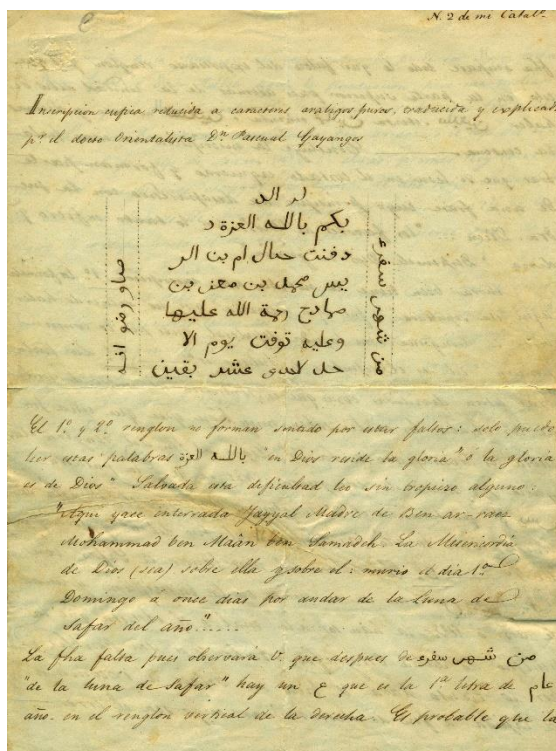 N. 2 de mi Catalº.
Inscripcion cufica reducida a caracteres arabigos puros, traducida y explicada
pr. el docto Orientalista Dn. Pascual Gayangos
لر الد
بكم بالله العزة د
دفنت حيال ام بن الر
يس محمد بن معن بن
صمادح رحمة الله عليها
وعليه توفت يوم الا
حد لاحدى عشر بقين
من شهر سفر ع
El 1º. y 2º. renglon no forman sentido por estar faltos: solo puedo
leer estas palabras بالله العزة "en Dios reside la gloria" ó la gloria
es de Dios". Salvada esta dificultad leo sin tropiezo alguno:
"Aqui yace enterrada Jayyal Madre de Ben ar-raez
Mohammad ben Maân ben Samadeh. La Misericordia
de Dios (sea) sobre ella y sobre el: murio el dia 1º.
Domingo á once dias por andar de la Luna de
Safar del año".....
La fha falta pues observará V. que despues de من شهر سفر ع
"de la luna de Safar" hay un ع que es la 1ª letra de عام
año. en el renglon vertical de la derecha. Es probable que la